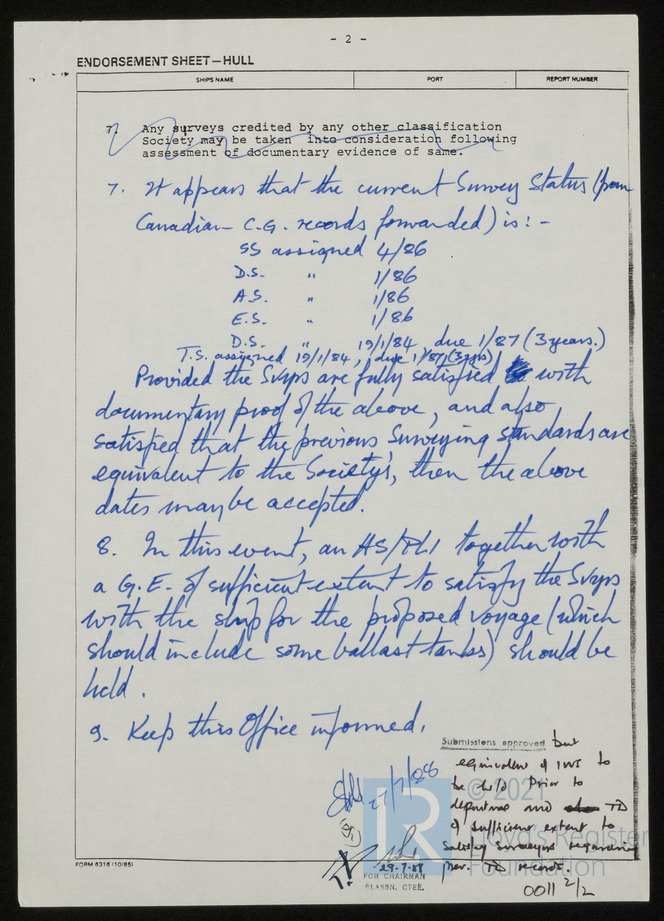 - 2 -
ENDORSEMENT SHEET—HULL
SHIPS NAME PORT REPORT NUMBER
7. Any surveys credited by any other classification
Society may be taken into consideration following
assessment of documentary evidence of same.
7. It appears that the current Survey Status (from
Canadian C.G. records forwarded) is: -
SS assigned 4/86
D.S. " 1/86
A.S. " 1/86
E.S. " 1/86
D.S. " 19/1/84 due 1/87 (3 years.)
T.S. assigned 19/1/84, due 1/87 (3yrs)
Provided the Svyrs are fully satisfied with
documentary proof of the above, and also
satisfied that the previous Surveying standards are
equivalent to the Society's, then the above
dates may be accepted.
8. In this event, an AS/ together with
a G.E. of sufficient extent to satisfy the Svyrs
with the ship for the proposed voyage (which
should include some ballast tanks) should be
held.
9. Keep this Office informed.
Submissions approved but
equivalent of IWS to
be held prior to
departure and TD
of sufficient extent to
satisfy surveyors regarding
prev. records.
27/7/88
29-7-88
FOR CHAIRMAN
CLASSN. CTEE.
FORM 6316 (10/85)
LR © 2021
Lloyd's Register
Foundation
0011 2/2